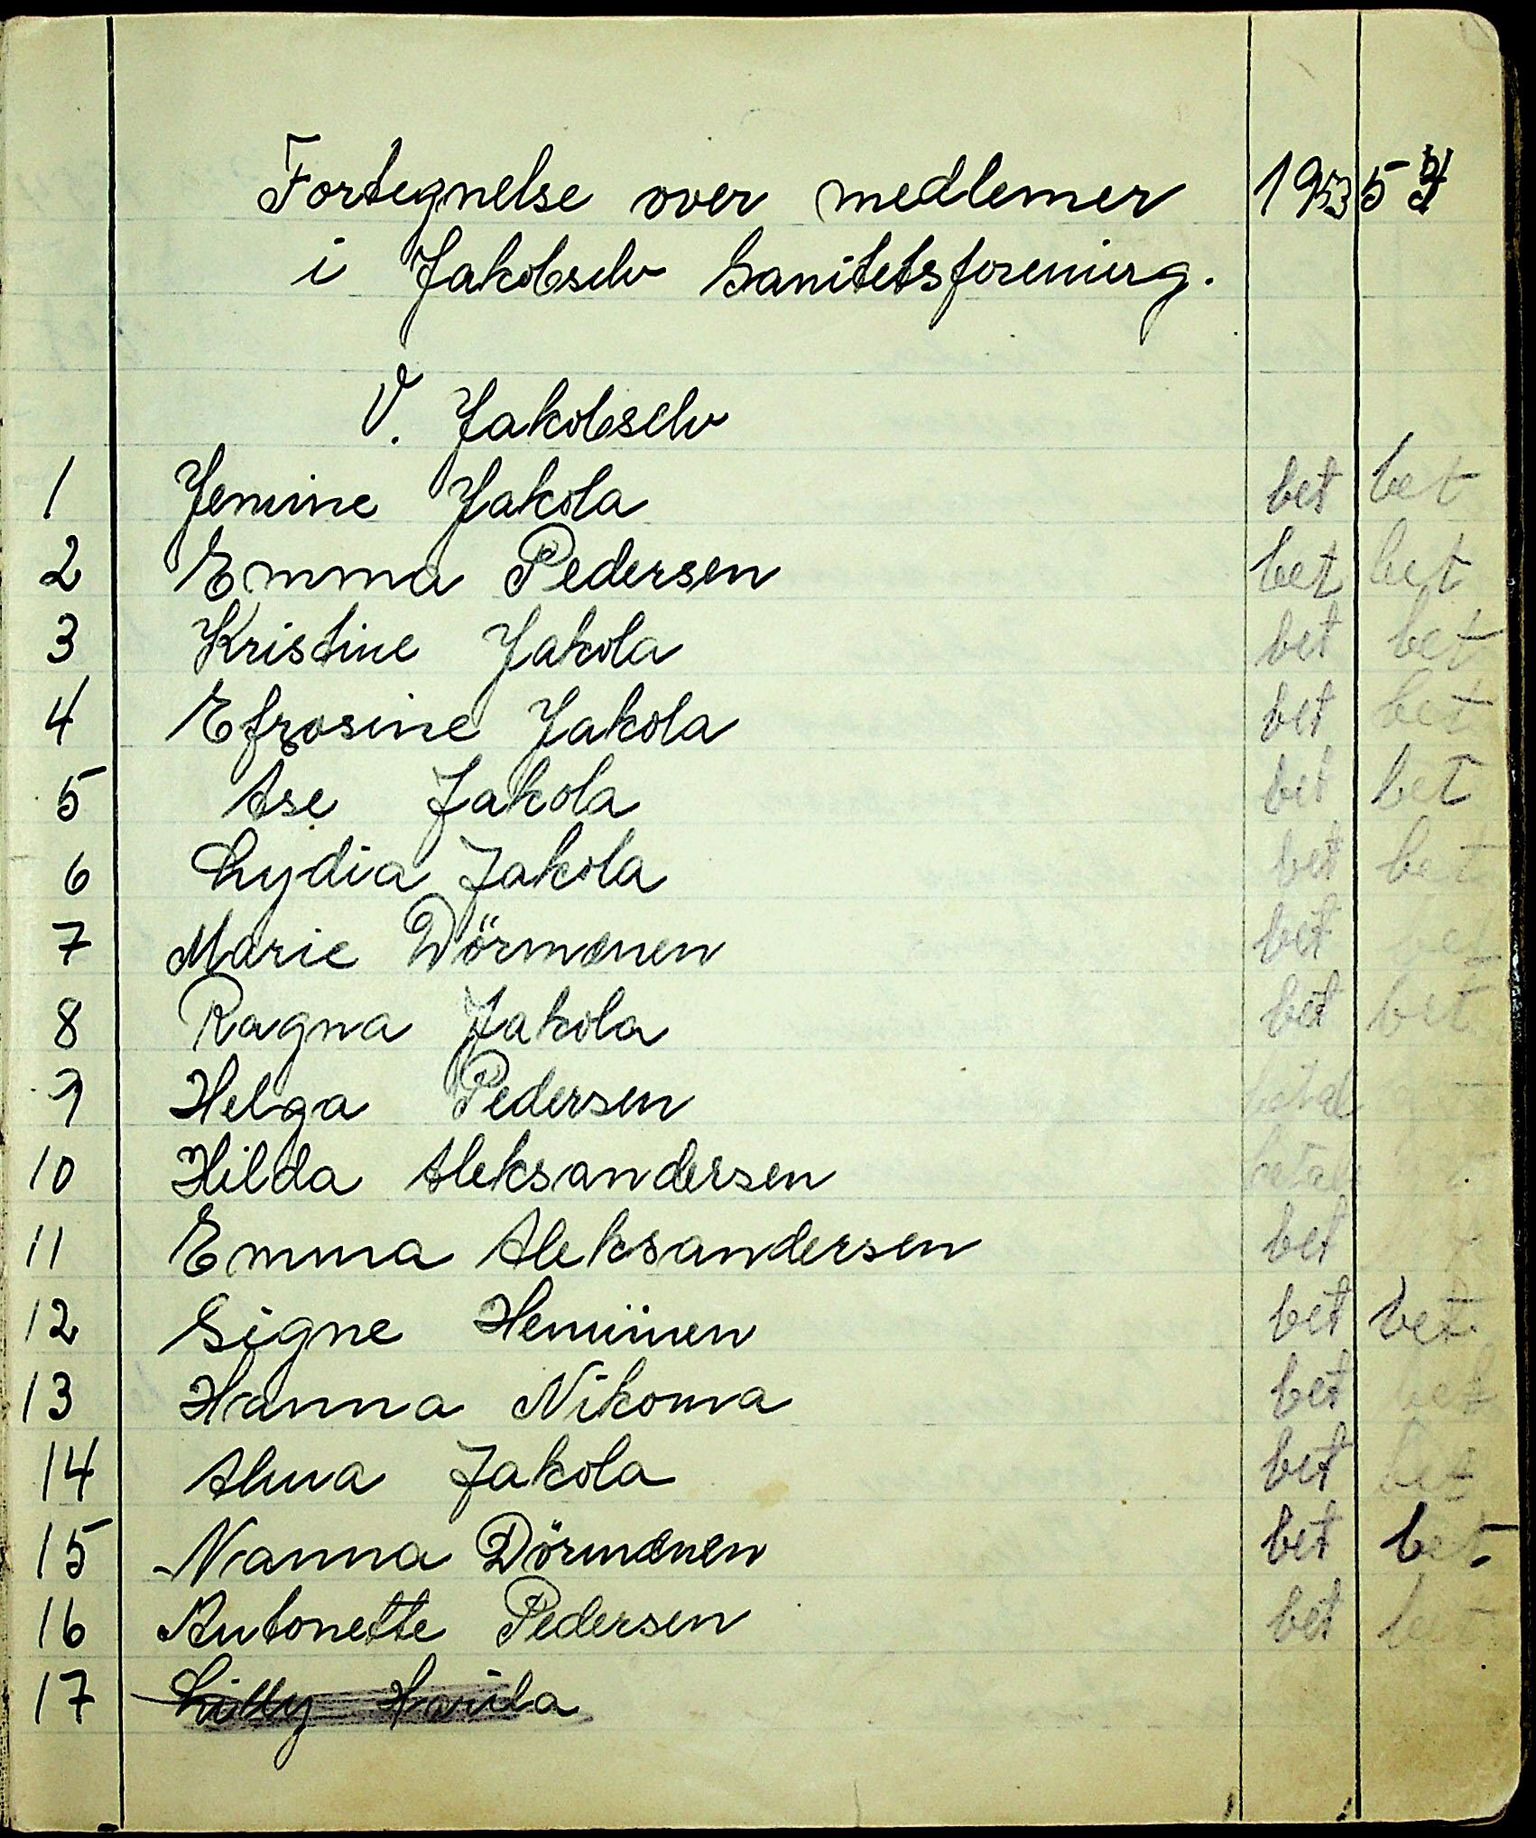 Fortegnelse over medlemer 1953 54
i Jakobselv Sanitetsforening.
V. Jakobselv
1 Jemine Jakola bet bet
2 Emma Pedersen bet bet
3 Kristine Jakola bet bet
4 Efrosine Jakola bet bet
5 Ase Jakola bet bet
6 Lydia Jakola bet bet
7 Marie Dörmænen bet bet
8 Ragna Jakola bet bet
9 Helga Pedersen betal
10 Hilda Aleksandersen betal
11 Emma Aleksandersen bet
12 Signe Heminen bet bet
13 Hanna Nikoma bet bet
14 Alma Jakola bet bet
15 Nanna Dörmænen bet bet
16 Antonette Pedersen bet bet
17 Lilly Havila